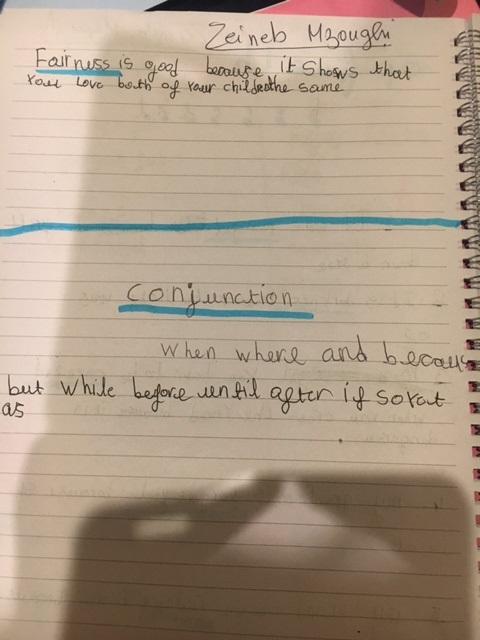 Zeineb Mzoughi
Fairness is good because it shows that
Your Love both of Your childrethe same
Conjunction
When where and becaus
but while before until after if so Yat
as